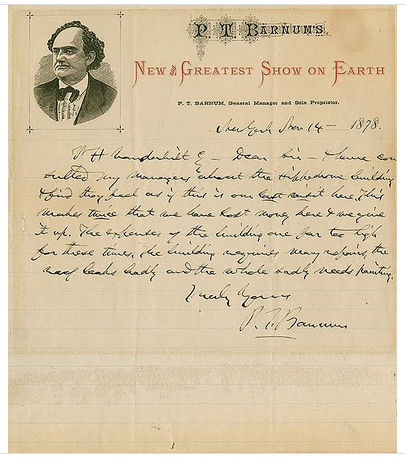 P. T. BARNUM'S
NEW AND GREATEST SHOW ON EARTH
P. T. BARNUM, General Manager and Sole Proprietor.
New York Nov 14 - 1878.
W H Vanderbilt - Dear Sir - I have con
sulted my managers about the Hippodrome building
& find they feel as if this is our last visit here. This
makes twice that we have lost money here & we give
it up. The expenses of the building are far too high
for these times. The building requires many repairs, the
roof leaks badly and the whole sadly needs painting.
Truly Yours
P. T. Barnum